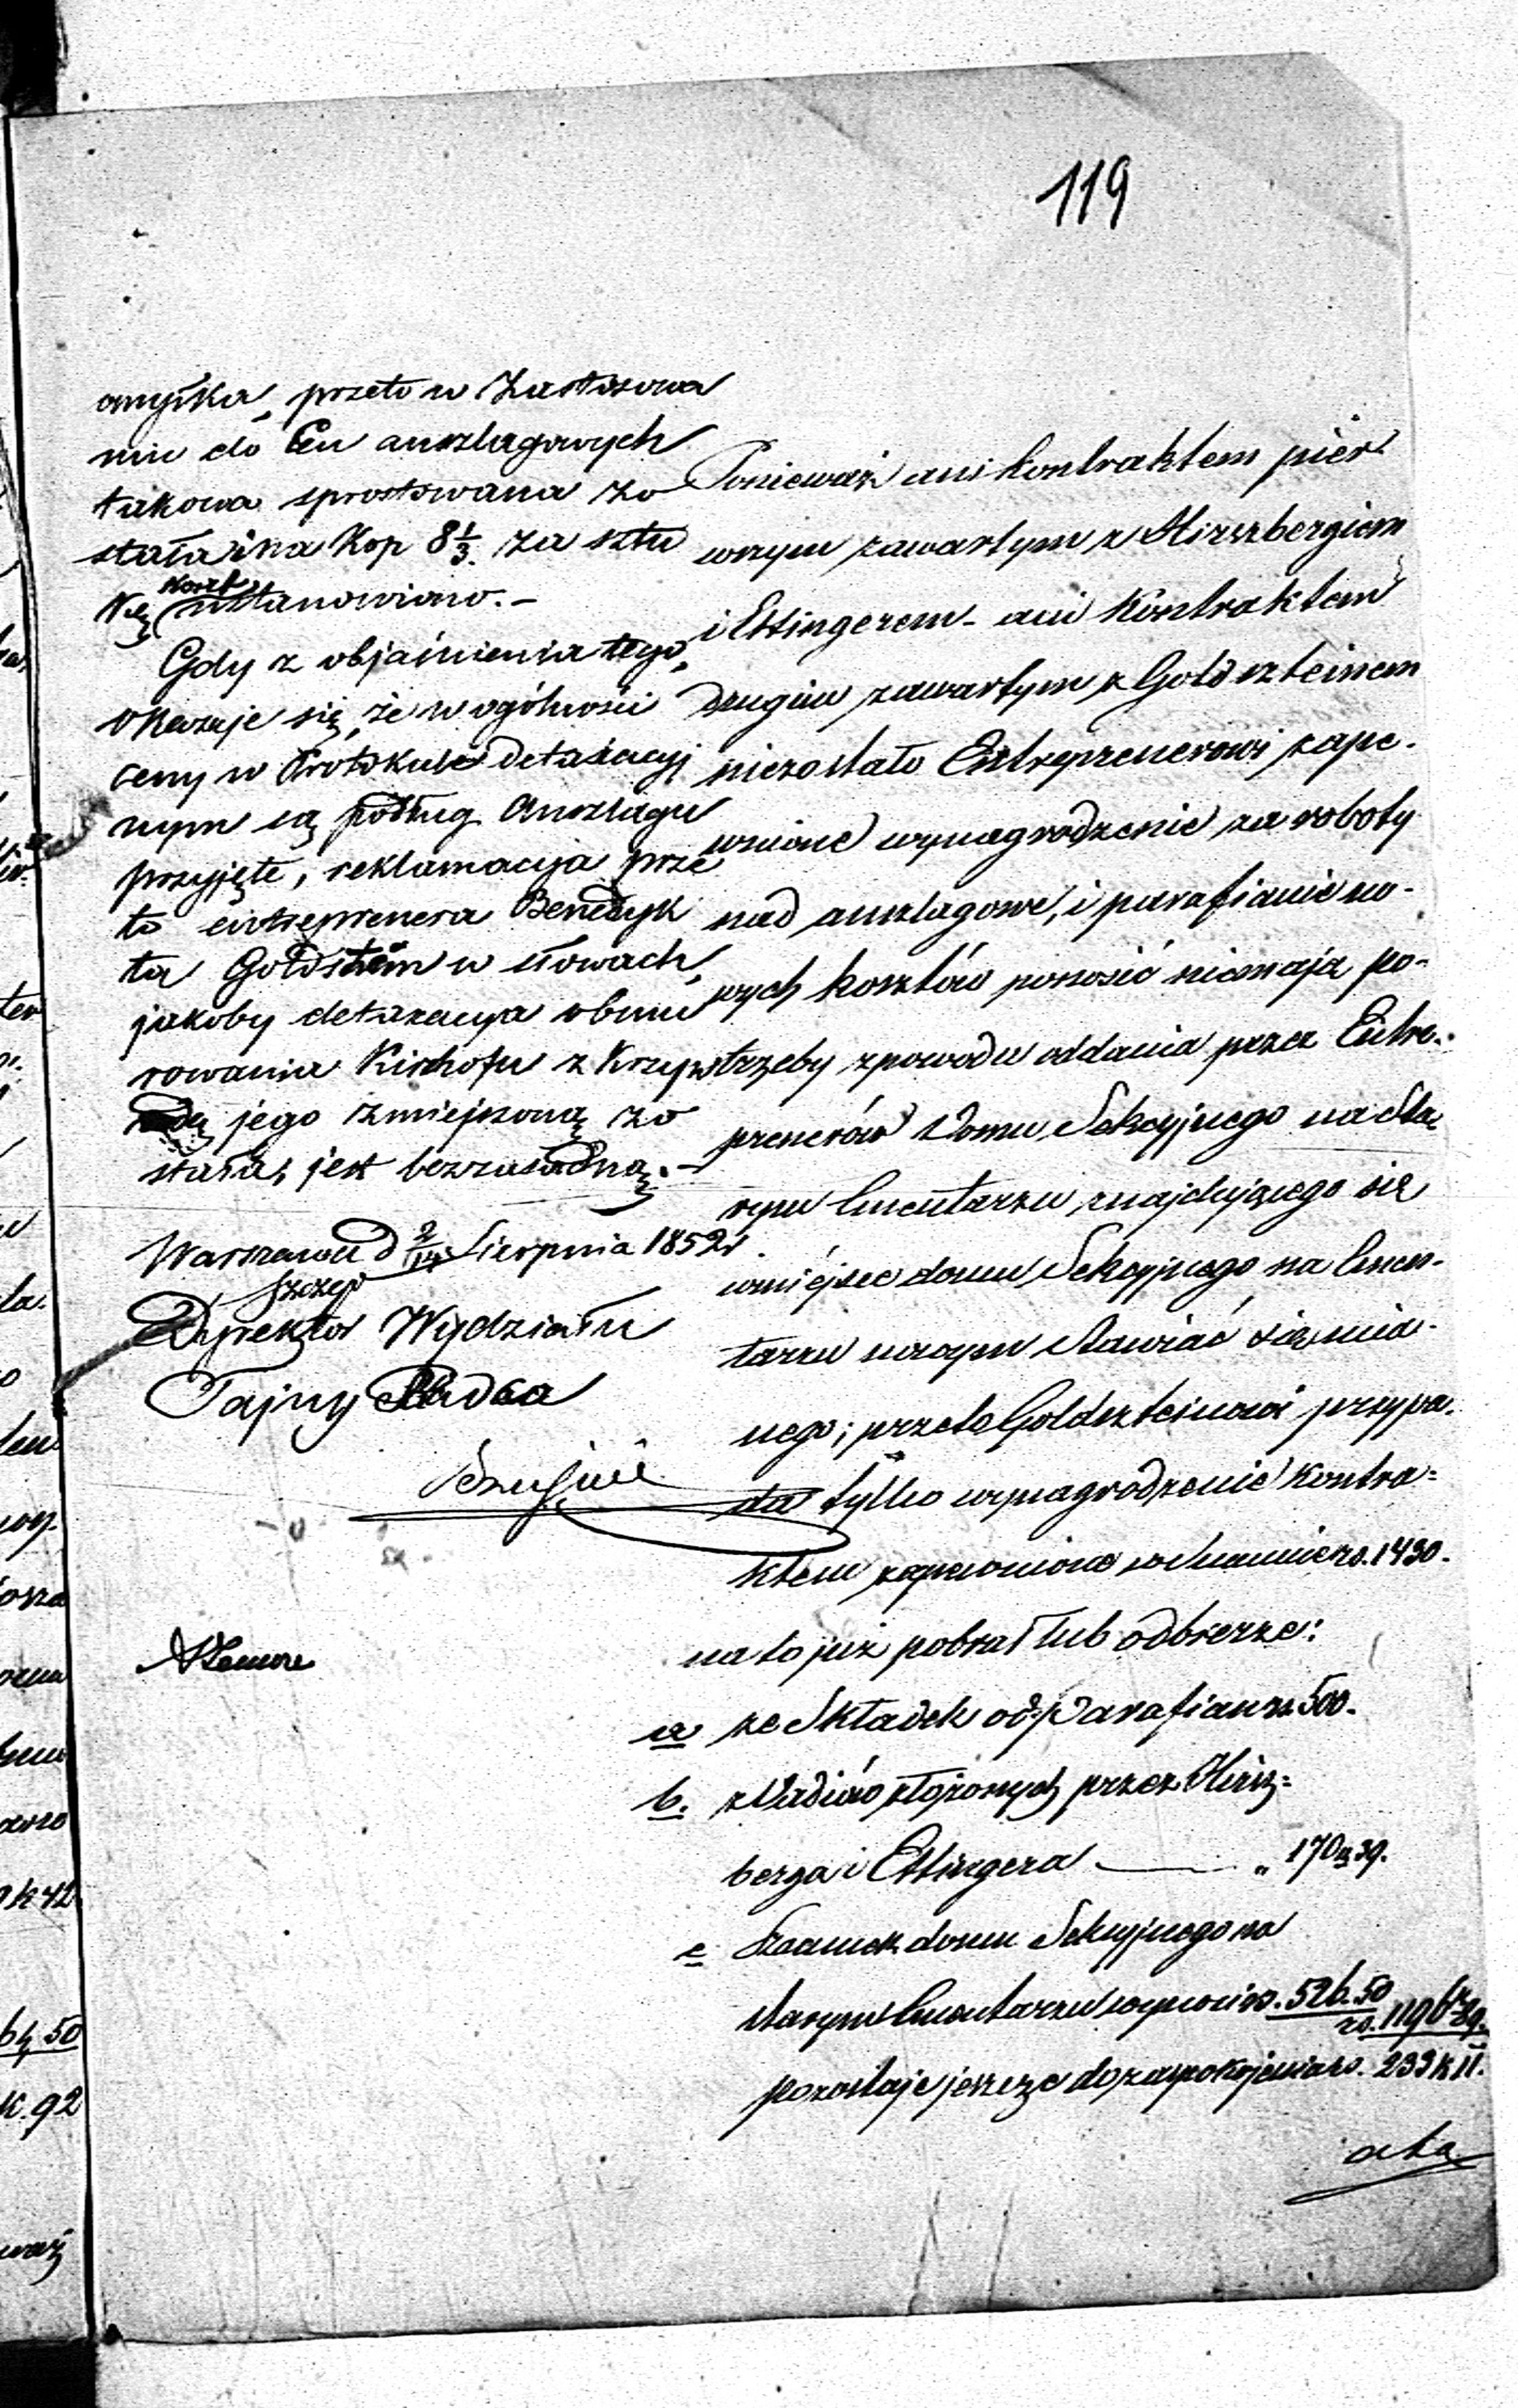 119
omyłka, przeto w Zastosowa
niu do Cen anszlagowych
takowa sprostowana zo
stała i na Kop 8 1/3. za sztu
kę koszt ustanowiono.-
Gdy z objaśnienia tego,
okazuje się, że w ogólności
ceny w Protokule detaxacyj
nym są podług Anszlagu
przyjęte, reklamacja prze
to entreprenera Benedyk
ta Goldstein w słowach,
jakoby detaxacya obmu
rowania Kirchofu z Krzyw
dą jego zmiejszoną zo
stała, jest bezzasadną.-
Warszawa d 2/14 Sierpnia 1852 r.
Dyrektor Wydziału
Tajny Radca
Ponieważ ani kontraktem pier
wszym zawartym z Hirszbergiem
i Ettingerem - ani Kontraktem
drugim zawartym z Goldszteinem
niezostało Entreprenerowi zape-
wnione wynagrodzenie za roboty
nad anszlagowe, i parafianie no-
wych kosztów ponosić niemają po-
trzeby z powodu oddania przez Entre-
prenerów Domu Sekcyjnego na Sta
rym Cmentarzu znajdującego się
w miejsce domu Sekcyjnego na Cmen-
tarzu nowym stawiać się mia-
nego; przeto Goldszteinowi przypa-
da tylko wynagrodzenie kontra=
ktem zapewnione w Summie rs. 1430.
na to już pobrał lub odbierze:
a ze Składek od Parafian rs. 500.
b. z Vadiów złożonych przez Hirsz=
berga i Ettingera — „ 170 k 39.
c Szacunek domu Sekcyjnego na
starym Cmentarzu wynosi rs. 526. 50
rs. 1196 k 89.
pozostaje jeszcze do zaspokojenia rs. 233 k 11.